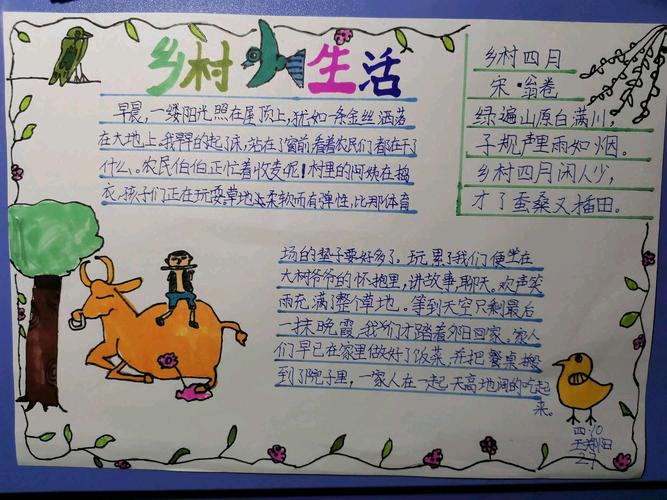 乡村生活
早晨，一缕阳光照在屋顶上，犹如一条金丝洒落
在大地上。我早早的起了床，站在了窗前看着农民们都在干
什么。农民伯伯正忙着收麦呢！村里的阿姨在搞
衣，孩子们正在玩耍。草地上柔软而有弹性，比那体育
场的垫子要好多了。玩累了我们便坐在
大树爷爷的怀抱里，讲故事，聊天。欢声笑
雨充满了整个草地。等到天空只剩最后
一抹晚霞，我们才踏着夕阳回家。家人
们早已在家里做好了饭菜，并把餐桌搬
到了院子里，一家人在一起天高地阔的吃起
来。
乡村四月
宋·翁卷
绿遍山原白满川，
子规声里雨如烟。
乡村四月闲人少，
才了蚕桑又插田。
四.10